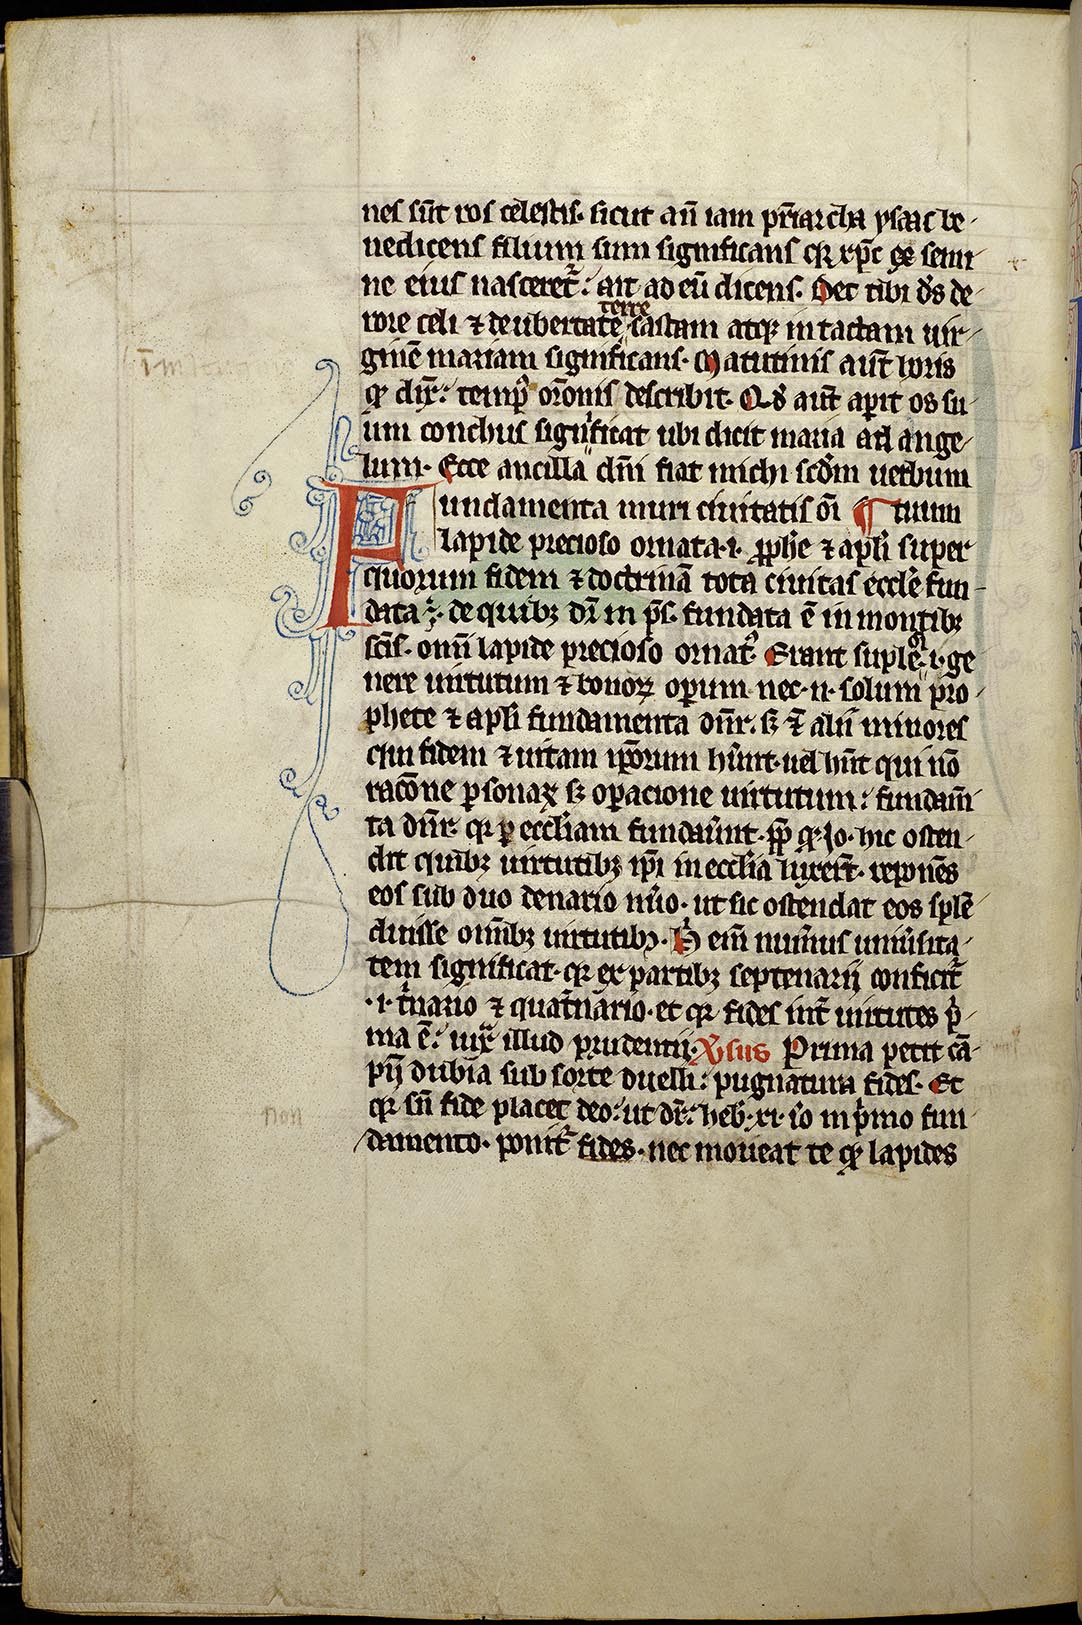 nes sūt ros celestis· sicut aū iam pr̄iarcha ysaac be-
nedicens filium suum significans qꝛ xp̄c ex semi
ne eius nasceret᷑: ait ad eū dicens. Det tibi d̄s de
rore celi ⁊ de ubertate terre castam atqꝫ intactam uir-
ginē mariam significans. Matutinis aūt horis
qꝛ dix̄: temp᷒ or̄onis describit. Qđ aūt aperit os su
um conchus significat ubi dicit maria ad ange-
lum. Ecce ancilla dn̄i fiat michi scd̄m uerbum
¶ tuum
Fundamenta muri ciuitatis oī
lapide precioso ornata·i· ꝓph̄e ⁊ apl̄i super
quorum fidem ⁊ doctrinā tota ciuitas eccl̄e fun-
data ē· de quibꝫ dr̄ in p̄s. fundata ē in montibꝫ
sc̄is· omni lapide precioso ornat᷒. Erant suple·i· ge
nere uirtutum ⁊ bonoꝝ operum nec·n· solum pro-
phete ⁊ apl̄i fundamenta dn̄r· sꝫ ⁊ alii minores
qui fidem ⁊ uitam ip̄orum hn̄t· uel hn̄t qui nō
rac̄one ꝑsonaꝝ sꝫ operacione uirtutum: fundam̄
ta dn̄r· qꝛ ꝑ eccl̄iam fundaūnt· ꝓp̄ qꝛ Jo· hic osten
dit quibꝫ uirtutibꝫ ip̄i in eccl̄ia luxer̄t· reponēs
eos sub duo denario nūo· ut sic ostendat eos splē
duisse om̄ibꝫ uirtutibꝫ. H̄ eni᷑ num̄us uniūsita-
tem significat· qꝛ ex partibꝫ septenarij conficit᷑
·i· t̄nario ⁊ quat̄nario· et qꝛ fides int̄ uirtutes p̄-
ma ē: iux̄ illud prudentij· V̄sus Prima petit cā-
pū dubia sub sorte duelli: pugnatura fides. Et
qꝛ sn̄ fide placet deo: ut dr̄: heb̄·xi· iō in p̄mo fun
damento· ponit᷑ fides· nec moueat te qꝛ lapides
non